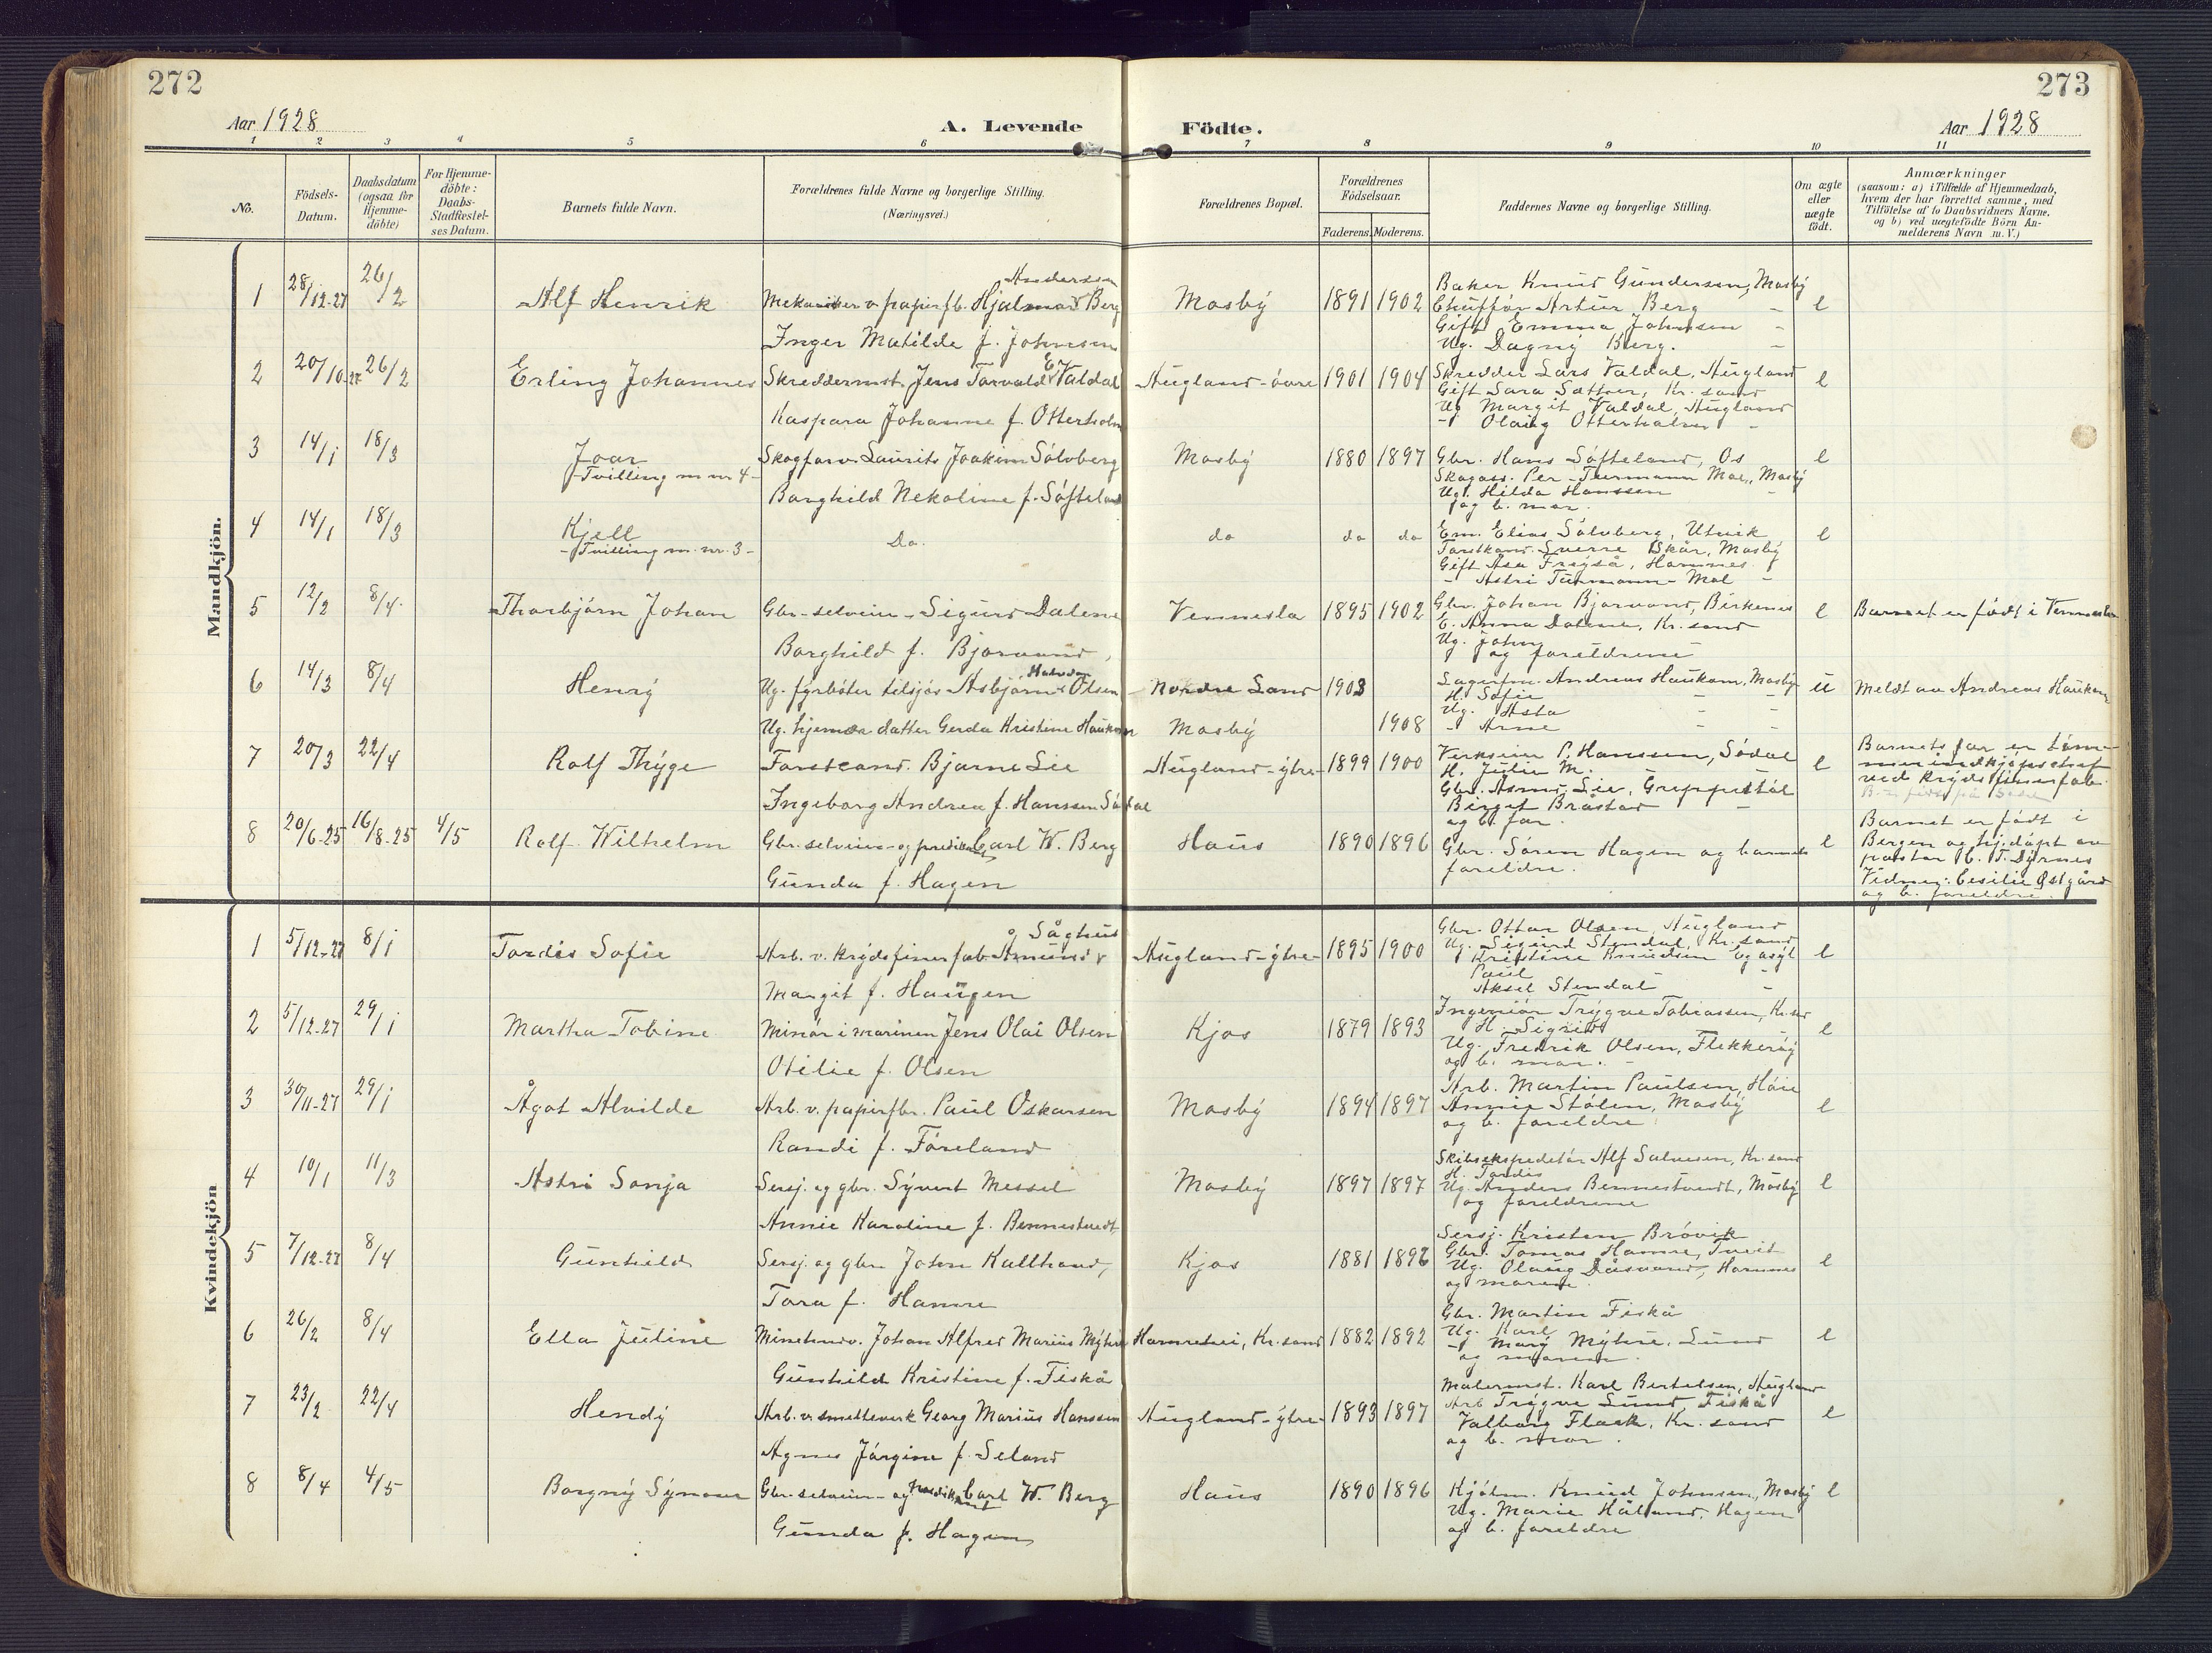 272
273
Aar 1928
A. Levende
Födte.
Aar 1928
1 2 3 4 5 6 7 8 9 10 11
No.
Födsels-
Datum.
Daabsdatum
(ogsaa for
Hjemme-
döbte)
For Hjemme-
döbte:
Daabs-
Stadfæstel-
ses Datum.
Barnets fulde Navn.
Forældrenes fulde Navne og borgerlige Stilling.
(Næringsvei.)
Forældrenes Bopæl.
Forældrenes
Födselsaar.
Faderens. Moderens.
Faddernes Navne og borgerlige Stilling.
Om ægte
eller
uægte
födt.
Anmærkninger
(saasom: a) i Tilfælde af Hjemmedaab,
hvem der har forrettet samme, med
Tilföielse af to Daabsvidners Navne,
og b) ved uægtefödte Börn An-
melderens Navn m. V.)
Mandkjön.
1 28/12-27 26/2 Alf Henrik
Andersen
Mekaniker v. papirfb. Hjalmar Berg
Inger Matilde f. Johnsen
Mosby 1891 1902
Baker Knud Gundersen, Mosby
Chuffør Artur Berg -
Gift Emma Johnsen -
Ug. Dagny Berg. -
e
2 20/10-27 26/2 Erling Johannes
Skreddermst. Jens Torvald E. Valdal
Kaspara Johanne f. Otterholm
Augland-övre 1901 1904
Skredder Lars Valdal, Augland
Gift Sara Sættver, Kr.sand
Ug Margit Valdal, Augland
-" Olaug Otterholm -
e
3 14/1 18/3 Joar
-Tvilling m nr 4-
Skogforv. Laurits Joakim Sólvberg
Borghild Nekoline f. Söfteland
Mosby 1880 1897
Gbr. Hans Söfteland, Os
Skogass. Per Turmann Moe, Mosby
Ug. Hilda Hanssen -
og b. mor.
e
4 14/1 18/3 Kjell
-Tvilling m. nr. 3-
Do.
do do do
Em. Elias Sólvberg, Utvik
Forstkand. Sverre Skår, Mosby
Gift Asa Frøyså, Hamnes
-" Astri Turmann-Moe -
e
5 12/2 8/4 Thorbjörn Johan
Gbr-selveier-Sigurd Dalene
Borghild f. Bjorvand,
Vennesla 1895 1902
Gbr. Johan Bjorvand, Birkenes
E. Anna Dalene, Kr.sand
Ug. John -
og foreldrene
e Barnet er født i Vennesla
6 14/3 8/4 Henry
Halvdan
Ug. fyrböter tilsjös Asbjörn Olsen
Ug. hjemv. datter Gerda Kristine Haukom
Nordre Land 1903
Mosby 1908
Lagerfm. Andreas Haukom, Mosby
H. Sofie - -
Ug. Asta - -
-" Arne - -
u Meldt av Andreas Haukom
7 20/3 22/4 Rolf Thyge
Forstcand. Bjarne Lie
Ingeborg Andrea f. Hanssen Södal
Augland-ytre 1899 1900
Verkseier P. Hanssen, Södal
H. Julie M.
Gbr. Asmd. Lie, Greppestöl
Birgit Bråstad -
og b. far
e
Barnets far er töm-
merindkjöpschef
ved krydsfinerfab.
8 20/6-25 16/8-25 4/5 Rolf Wilhelm
Gbr. selveier- og predikant Carl W. Berg
Gunda f. Hagen
Haus 1890 1896
Gbr. Sören Hagen og barnets
foreldre.
e
Barnet er födt i
Bergen og hj.döpt av
pastor C. T. Dyrnes
Vidner: Cesilie Östgård
og b. foreldre.
Kvindekjön
1 5/12-27 8/1 Tordis Sofie
o Såghus
Arb. v. krydsfinerfab. Amund
Margit f. Haugen
Augland-ytre 1895 1900
Gbr. Ottar Olsen, Augland
Ug. Sigurd Stendal, Kr.sand
" Kristine Knudsen Vågsbyd
Paul -
Aksel Stendal -
e
2 5/12-27 29/1 Martha Tobine
Minör i marinen Jens Olai Olsen
Otilie f. Olsen
Kjos 1879 1893
Ingeniör Trygve Tobiassen, Kr.sd
H. Sigrid
Ug. Fredrik Olsen, Flekkeröy
og b. mor.
e
3 30/11-27 29/1 Ågot Alvilde
Arb. v. papirfbr. Paul Oskarsen
Randi f. Föreland
Mosby 1894 1897
Arb. Martin Paulsen, Höie
Annie Stölen, Mosby
og b. foreldre
e
4 10/1 11/3 Astri Sonja
Sersj. og gbr. Syvert Messel
Annie Karoline f. Bennestvedt,
Mosby 1897 1897
Skibsekspeditör Alf Salvesen, Kr.sand
H. Tordis
Ug. Anders Bennestvedt, Mosby
og foreldrene
e
5 7/12-27 8/4 Gunhild
Sersj. og gbr. John Kallhovd,
Tora f. Hamre
Kjos 1881 1892
Sersj. Kristen Brövik
Gbr. Tomas Hamre, Tveit
Ug. Olaug Dåsvand, Hamnes
og moren.
e
6 26/2 8/4 Ella Juline
Mineunderv. Johan Alfred Marius Myhre
Gunhild Kristine f. Fiskå
Hamretei, Kr.sand 1882 1892
Gbr. Martin Fiskå
Ug. Karl
-" Mary Myhre, Lund
og moren.
e
7 23/2 22/4 Hendy
Arb. v. smelteverk Georg Marius Hanssen
Agnes Jörgine f. Seland
Augland-ytre 1893 1897
Malermst. Karl Bertelsen, Augland
Arb Trygve Lund, Fiskå
Valborg Flaek, Kr.sand
og b. mor.
e
8 8/4 4/5 Borgny Synnöve
Gbr. selveier- og predikant Carl W. Berg
Gunda f. Hagen
Haus 1890 1896
Kjöbm. Knud Johnsen, Mosby
Ug. Marie Håland, Hagen
og b. foreldre
e